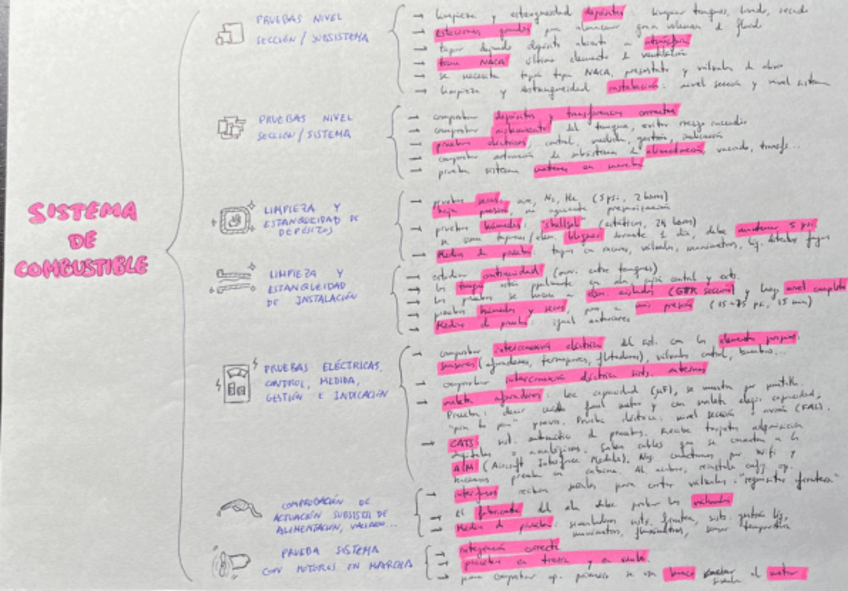 SISTEMA
DE
COMBUSTIBLE
PRUEBAS NIVEL
SECCIÓN / SUBSISTEMA
→ limpieza y estanqueidad depósitos. limpiar tanques,
→ estaciones grandes para almacenar gran volumen de fluid
→ tapar dejando depósito abierto a atmósfera
→ toma NACA último elemento de ventilación
→ se necesita tapar toma NACA, presostato y válvula de
→ limpieza y estanqueidad instalación: nivel sección y nivel sistema
PRUEBAS NIVEL
SECCIÓN / SISTEMA
→ comprobar depósitos y transferencia correctas
→ comprobar aislamiento del tanque, evitar riesgo
→ pruebas eléctricas, control, medida, gestión, indicación
→ comprobar actuación de subsistema de alimentación, vaciado, transf...
→ prueba sistema motores en marcha
LIMPIEZA Y
ESTANQUEIDAD DE
DEPÓSITOS
→ pruebas secas: aire, N₂, He, (5 psi, 2 horas)
baja presión, no aguanta presurización
→ pruebas húmedas: "shellsol" (estática, 24 horas)
se usan tapones/ bloqueo durante 1 día, debe mantener 5 psi
→ Medios de prueba: tapas, válvulas, manómetros, líq. detector fugas
LIMPIEZA Y
ESTANQUEIDAD
DE INSTALACIÓN
→ estudiar continuidad (entre tanques)
→ los tanques están en ala, cajón central y
→ las pruebas se hacen a elem. aislados (GTR sección) y luego nivel completo
→ pruebas húmedas y secas, pero a más presión (15 min)
→ Medios de prueba: igual anteriores
PRUEBAS ELÉCTRICAS,
CONTROL, MEDIDA,
GESTIÓN E INDICACIÓN
→ comprobar interconexión eléctrica del sist. con los elementos propios:
sensores (aforadores, termopares, flotadores), válvulas control, bombas...
→ comprobar interconexión eléctrica sists. externos
→ maleta aforadores: lee capacidad (µF), se muestra por pantalla.
"pin to pin" Prueba: nivel sección o avión (FAL).
→ CATS: sist. automático de pruebas. Recibe tarjetas adquisición
digitales o analógicas. Salen cables que se conectan a la
AIM (Aircraft Interface Module). Nos conectamos por Wifi y
hacemos prueba en cabina. Al acabar, reinstala config. op.
COMPROBACIÓN DE
ACTUACIÓN SUBSIST. DE
ALIMENTACIÓN, VACIADO...
→ interfases reciben señales para cortar válvulas: "requisitos frontera"
→ el fabricante del ala debe probar las válvulas
→ Medios de prueba: simuladores sists. frontera, sists. gestión líq,
manómetros, flujómetros, sensor temperatura
PRUEBA SISTEMA
CON MOTORES EN MARCHA
→ integración correcta
→ pruebas en tierra y en vuelo
→ para comprobar op. primero se usa banco simula el motor